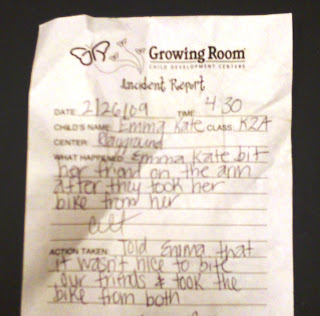 Growing Room
CHILD DEVELOPMENT CENTERS
Incident Report
DATE 2/26/09 TIME 4 30
CHILD'S NAME Emma Kate CLASS K2A
CENTER Playground
WHAT HAPPENED Emma Kate bit
her friend on the arm
after they took her
bike from her
ACTION TAKEN Told Emma that
it wasn't nice to bite
our friends & took the
bike from both